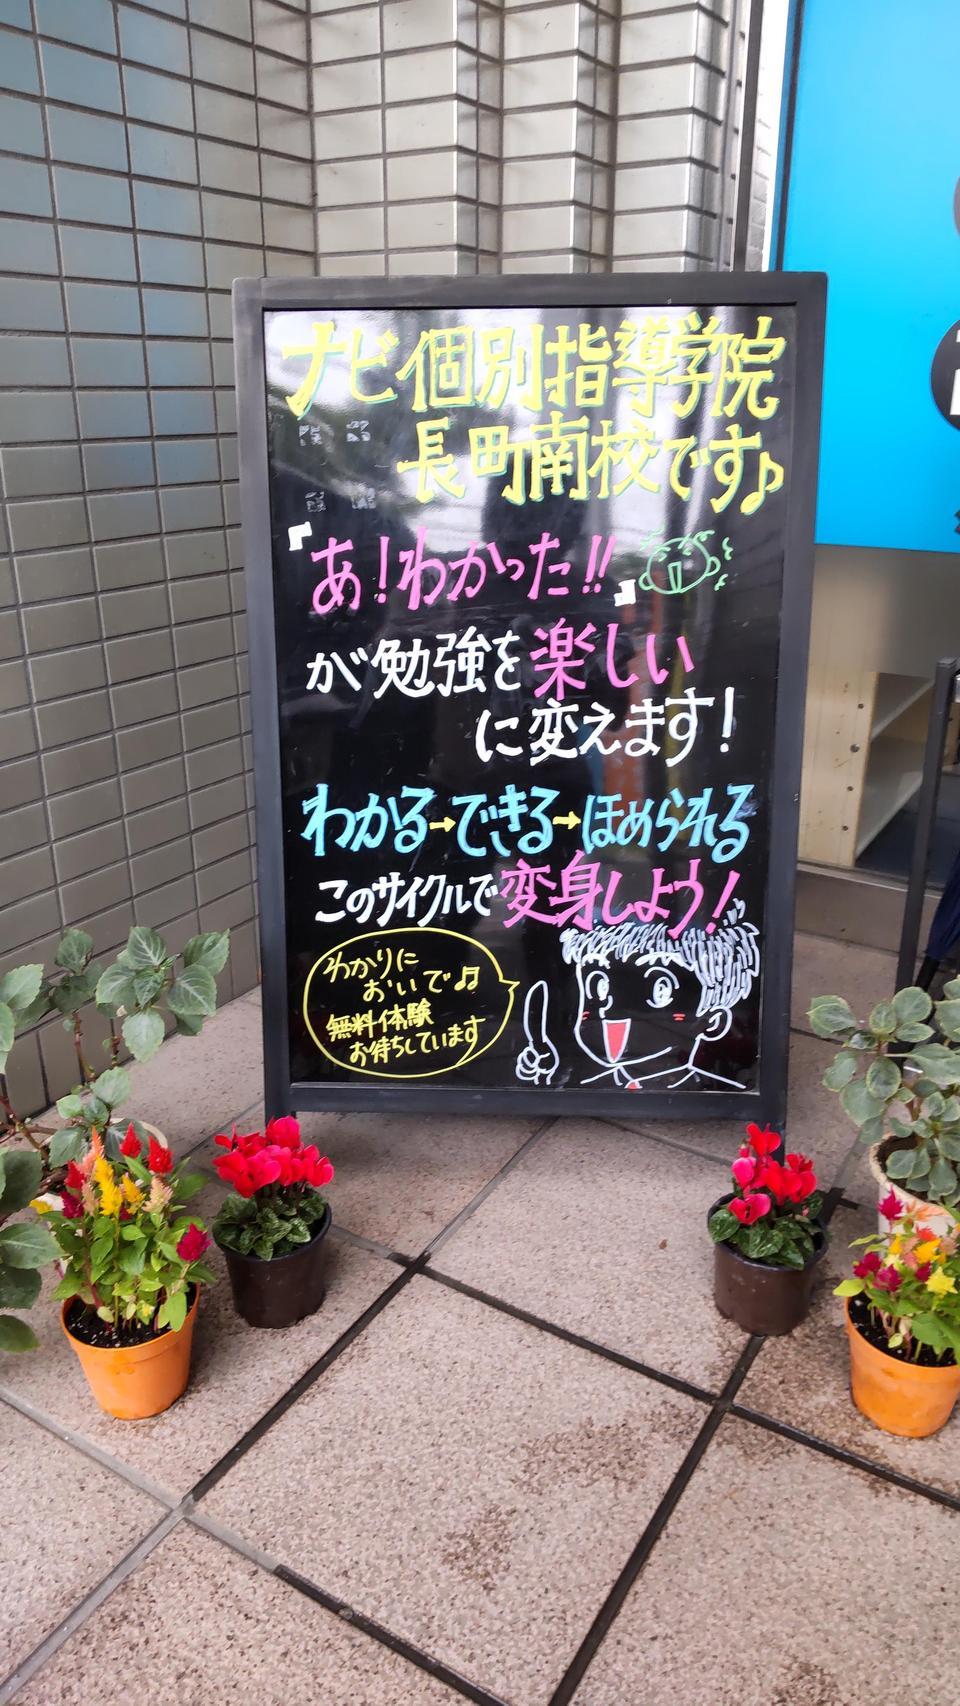 ナビ個別指導学院
長町南校です♪
「あ!わかった!!」
が勉強を楽しい
に変えます!
わかる→できる→ほめられる
このサイクルで変身しよう!
わかりに
おいで♫
無料体験
お待ちしています